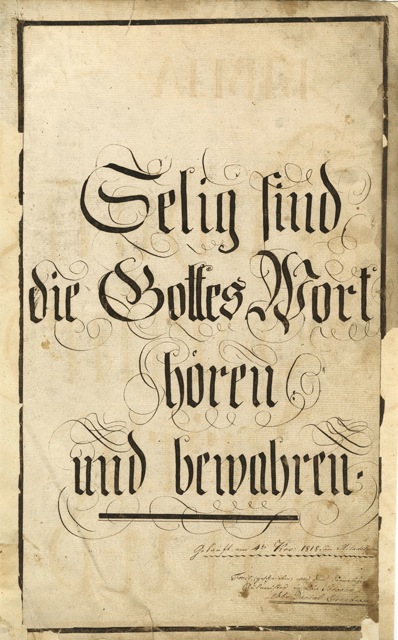 Selig sind
die Gottes Wort
hören
und bewahren.
Gekauft am 4t Nov. 1818.